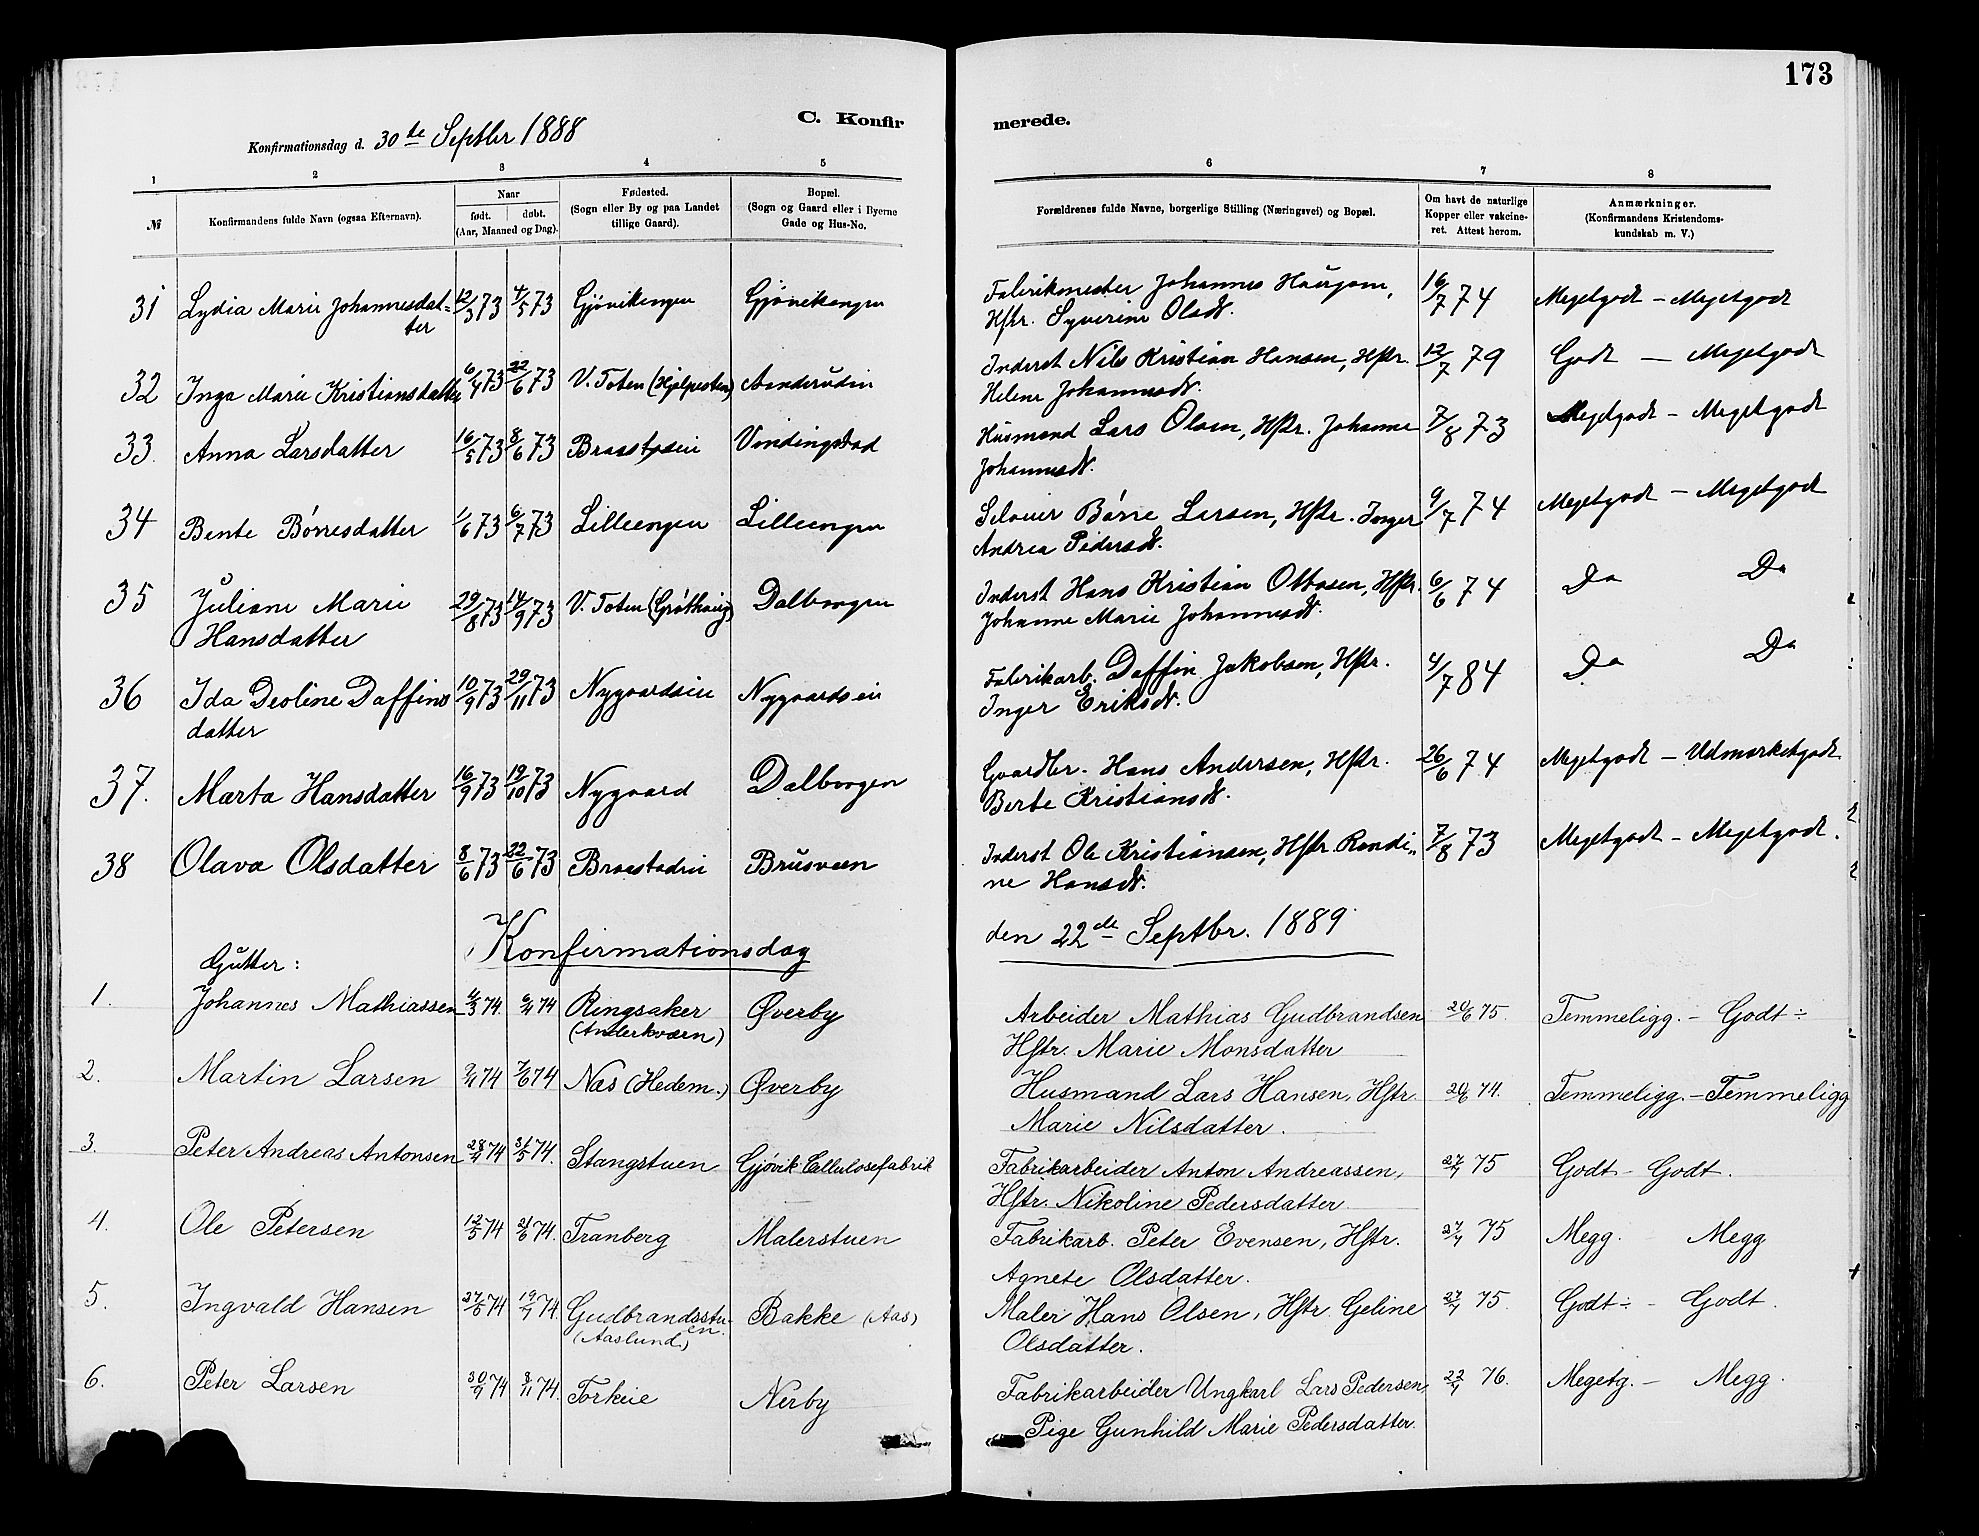 173
C. Konfir
merede.
Konfirmationsdag d. 30te Septbr 1888
1 2 3 4 5 6 7 8
№
Konfirmandens fulde Navn (ogsaa Efternavn).
Naar
født. døbt.
(Aar, Maaned og Dag).
Fødested.
(Sogn eller By og paa Landet
tillige Gaard).
Bopæl.
(Sogn og Gaard eller i Byerne
Gade og Hus-No.
Forældrenes fulde Navne, borgerlige Stilling (Næringsvei) og Bopæl.
Om havt de naturlige
Kopper eller vakcine-
ret. Attest herom.
Anmærkninger.
(Konfirmandens Kristendoms-
kundskab m. V.)
31 Lydia Marie Johannesdat- 12/3 73 4/5 73 Gjøvikengen Gjøvikengen Fabrikmester Johannes Haugom, 16/7 74 Megetgodt – Megetgodt
ter Hstr. Syverine Olsdt.
32 Inga Marie Kristiansdatter 6/4 73 22/6 73 V. Toten (Hjelpesten) Aanderudin Inderst Nils Kristian Hansen, Hstr. 12/7 79 Godt – Megetgodt
Helene Johannesdt.
33. Anna Larsdatter 16/5 73 8/6 73 Braastadein Vindingstad Husmand Lars Olsen, Hstr. Johanne 7/8 73 Megetgodt – Megetgodt
Johannesdt.
34 Bente Børresdatter 1/6 73 6/7 73 Lilleengen Lilleengen Selveier Børre Larsen, Hstr. Inger 9/7 74 Megetgodt – Megetgodt
Andrea Pedersdt.
35 Juliane Marie 29/8 73 14/9 73 V. Toten (Grøthaug) Dalborgen Inderst Hans Kristian Ottosen, Hstr. 6/6 74 Do Do
Hansdatter Johanne Marie Johannesdt.
36 Ida Deoline Daffins 10/9 73 29/11 73 Nygaardseie Nygaardseie Fabrikarb. Daffin Jakobsen, Hstr. 4/7 84 Do Do
datter Inger Eriksdt.
37. Marta Hansdatter 16/9 73 19/10 73 Nygaard Dalborgen Gaardbr. Hans Andersen, Hstr. 26/6 74 Megetgodt – Udmærketgodt
Berte Kristiansdt.
38 Olava Olsdatter 8/6 73 22/6 73 Braastadeie Brusveen Inderst Ole Kristiansen, Hstr. Rondi„ 7/8 73 Megetgodt – Megetgodt.
ne Hansdt.
Konfirmationsdag den 22de Septbr. 1889
Gutter:
1. Johannes Mathiassen 74. 74 Ringsaker Øverby Arbeider Mathias Gudbrandsen 20/6 75. Temmeligg. – Godt ÷
(Anderkværn) Hstr. Marie Monsdatter
2. Martin Larsen 74 7/6 74 Næs (Hedem.) Øverby Husmand Lars Hansen, Hstr. 20/6 74. Temmeligg. – Temmeligg
Marie Nilsdatter.
3. Peter Andreas Antonsen 28/4 74 31/5 74. Stangstuen Gjøvik Cellulosefabrik Fabrikarbeider Anton Andreassen, 27/7 75 Godt – Godt.
Hstr. Nikoline Pedersdatter
4. Ole Petersen 12/5 74 21/6 74. Tranberg Malerstuen Fabrikarb. Peter Evensen, Hstr. 27/7 75 Megg. Megg
Agnete Olsdatter.
5. Ingvald Hansen 27/5 74 19/7 74. Gudbrandsstu- Bakke (Aas) Maler Hans Olsen, Hstr. Geline 27/7 75. Godt ÷ – Godt.
en. (Aaslund) Olsdatter.
6. Peter Larsen 30/9 74 8/11 74. Torkeie Nerby Fabrikarbeider Ungkarl Lars Pedersen, 76. Megetg. – Megg.
Pige Gunhild Marie Pedersdatter